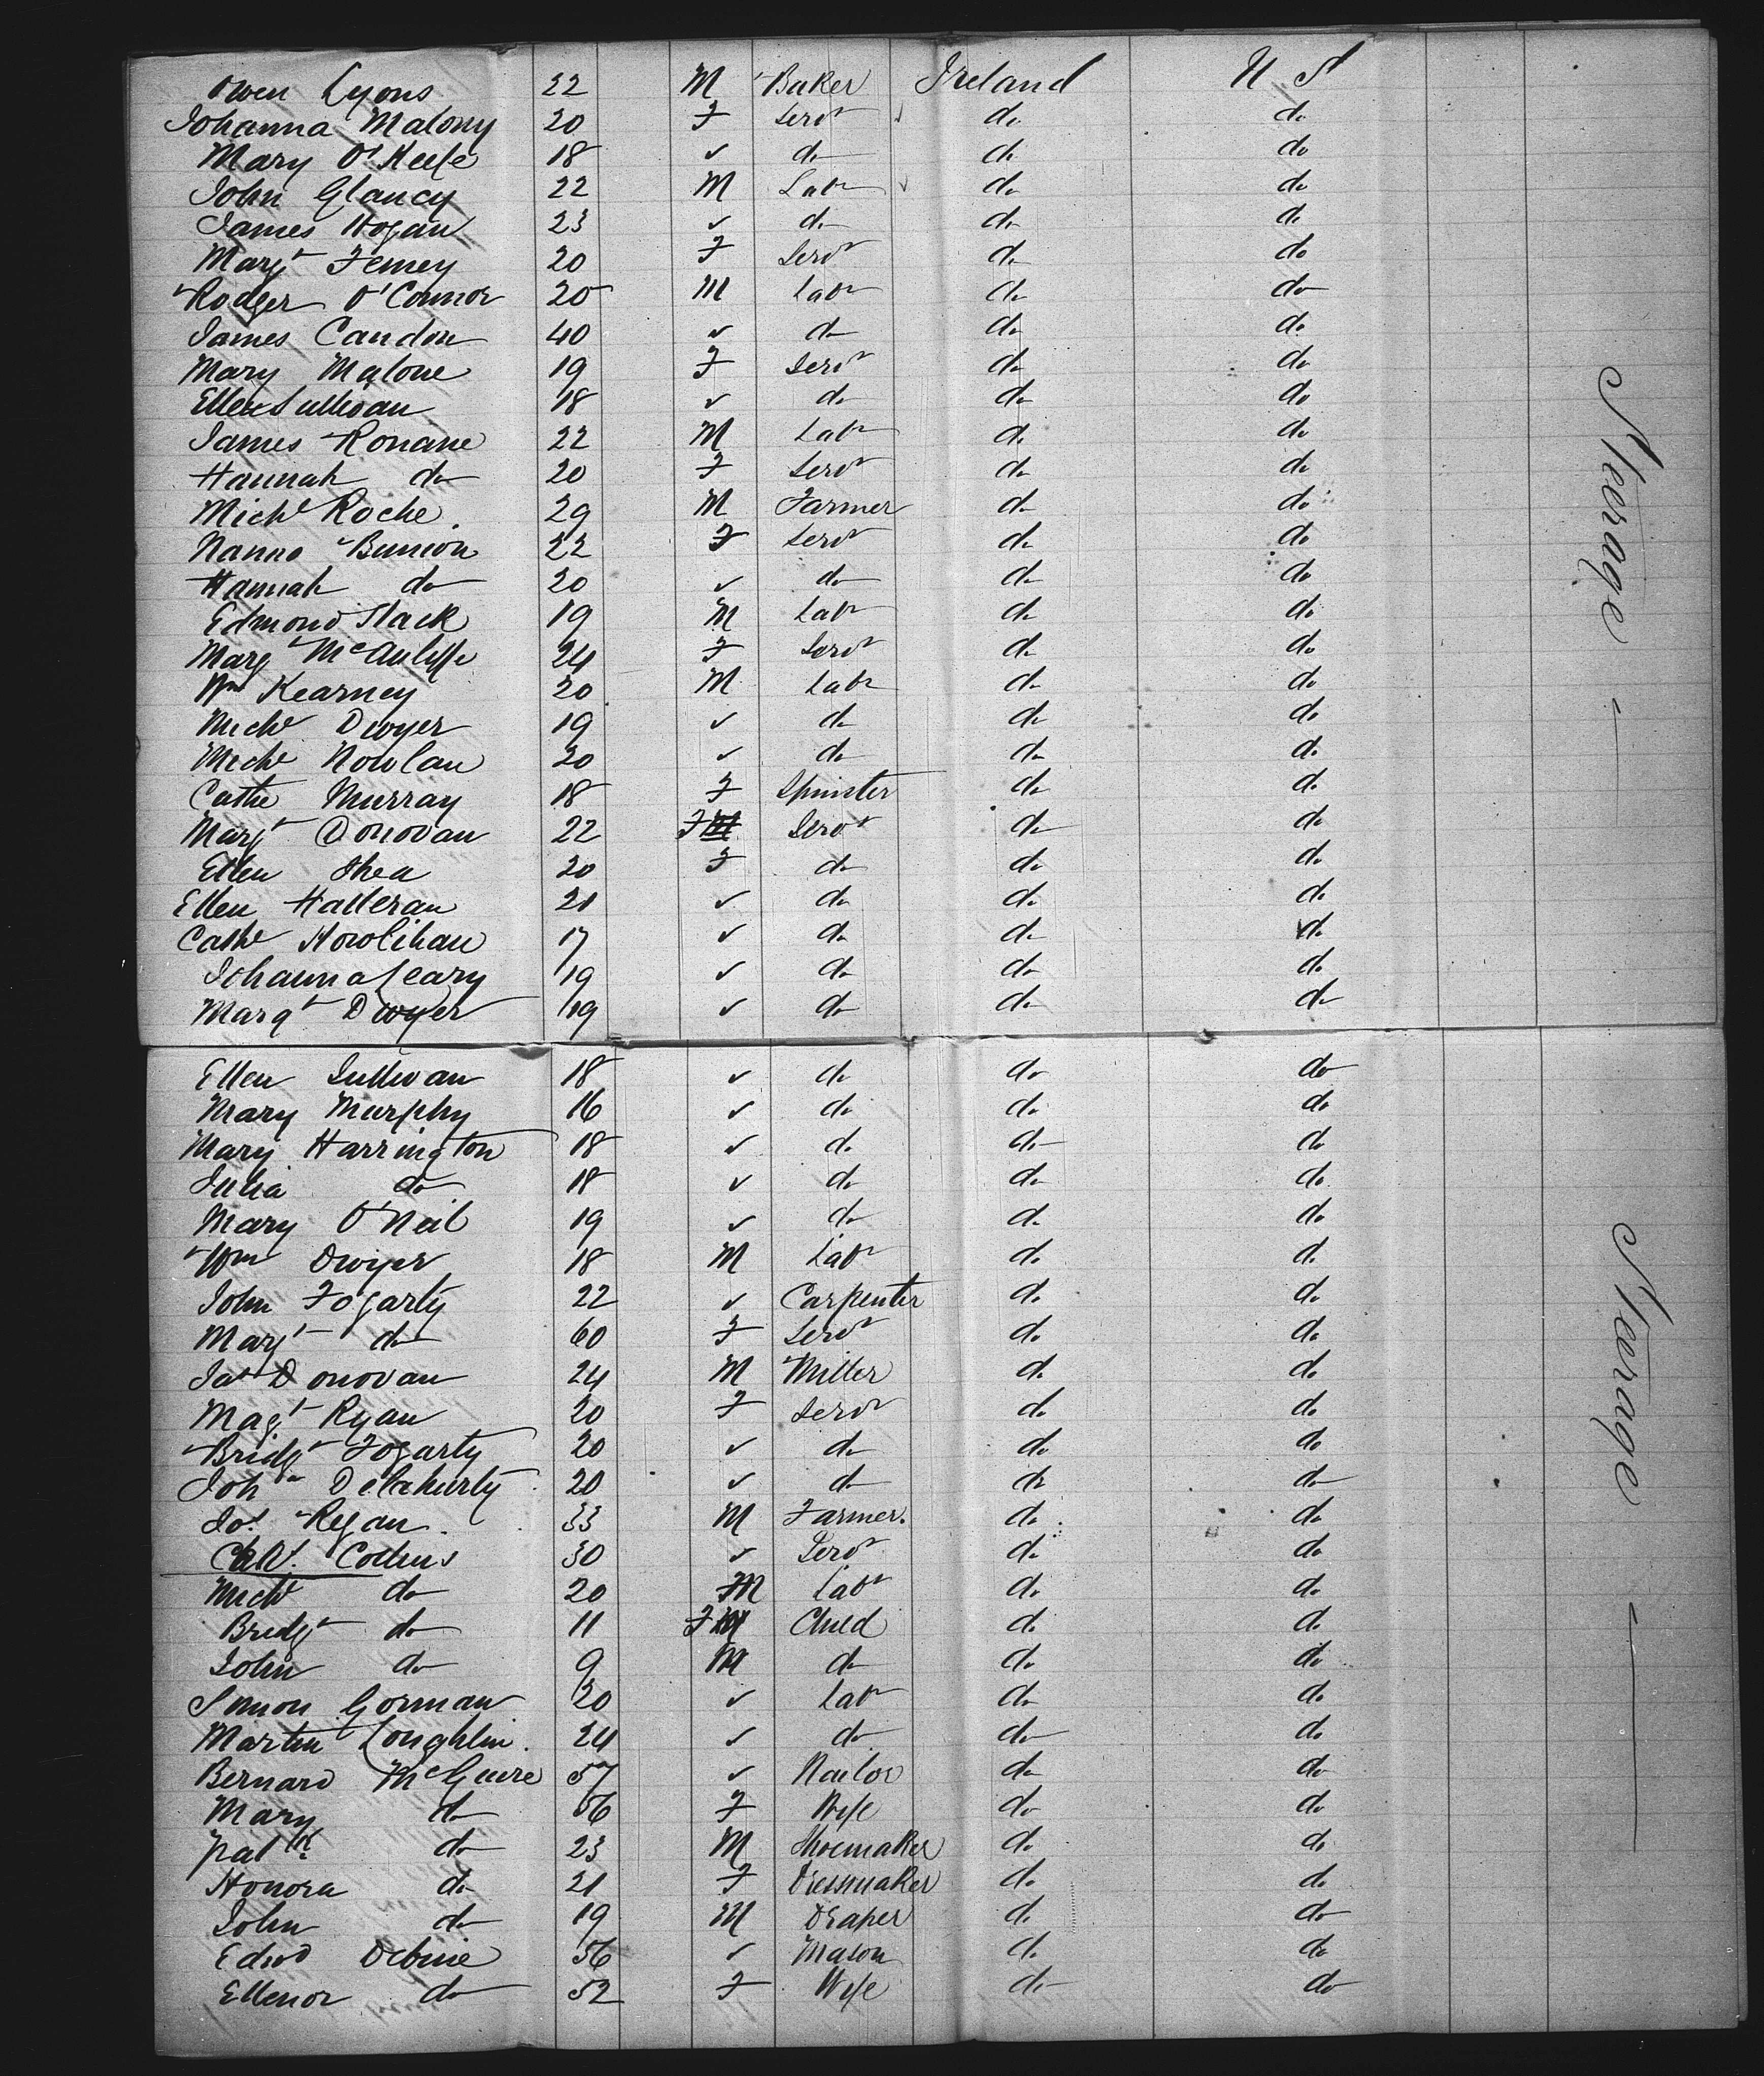 Owen Lyons 22 M Baker Ireland U S
Johanna Malony 20 F Servt do do
Mary O'Keefe 18 ✓ do do do
John Glancy 22 M Labr do do
James Hogan 23 ✓ do do do
Margt Femey 20 F Servt do do
Rodger O'Connor 20 M Labr do do
James Candon 40 ✓ do do do
Mary Malone 19 F Servt do do
Ellen Sullivan 18 ✓ do do do
James Ronane 22 M Labr do do
Hannah do 20 F Servt do do
Michl Roche. 29 M Farmer do do
Nanno Bunion 22 F Servt do do
Hannah do 20 ✓ do do do
Edmond Slack 19 M Labr do do
Margt McAuliffe 24 F Servt do do
Wm Kearney 20 M Labr do do
Michl Dwyer 19 ✓ do do do
Michl Nowlan 20 ✓ do do do
Cathe Murray 18 F Spinster do do
Margt Donovan 22 F Servt do do
Ellen Shea 20 F do do do
Ellen Halleran 21 ✓ do do do
Cathe Howlihan 17 ✓ do do do
Johanna Leary 19 ✓ do do do
Margt Dwyer 19 ✓ do do do
Ellen Sullivan 18 ✓ do do do
Mary Murphy 16 ✓ do do do
Mary Harrington 18 ✓ do do do
Julia do 18 ✓ do do do
Mary O'Neil 19 ✓ do do do
Wm Dwyer 18 M Labr do do
John Fogarty 22 ✓ Carpenter do do
Margt do 60 F Servt do do
Jas Donovan 24 M Miller do do
Magt Ryan 20 F Servt do do
Bridgt Fogarty 20 ✓ do do do
Joha Delahunty 20 ✓ do do do
Jos. Regan. 33 M Farmer. do do
Collins 30 ✓ Servt do do
Michl do 20 M Labr do do
Bridgt do 11 F Child do do
John do 9 M do do do
Simon Gorman 20 ✓ Labr do do
Martin Loughlin. 24 ✓ do do do
Bernard McGuire 57 ✓ Nailor do do
Mary do 56 F Wife do do
Patk do 23 M Shoemaker do do
Honora do 21 F Dressmaker do do
John do 19 M Draper do do
Edwd 56 ✓ Mason do do
Ellenor do 52 F Wife do do
Steerage
Steerage